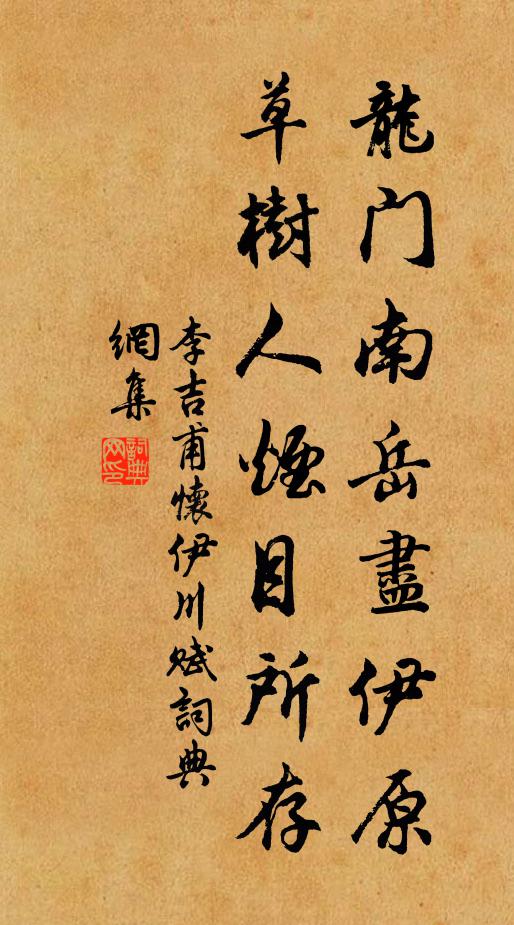 龍门南岳盡伊原
草樹人煙目所存
李吉甫懷伊川賦詞典
網集
詞典
网印